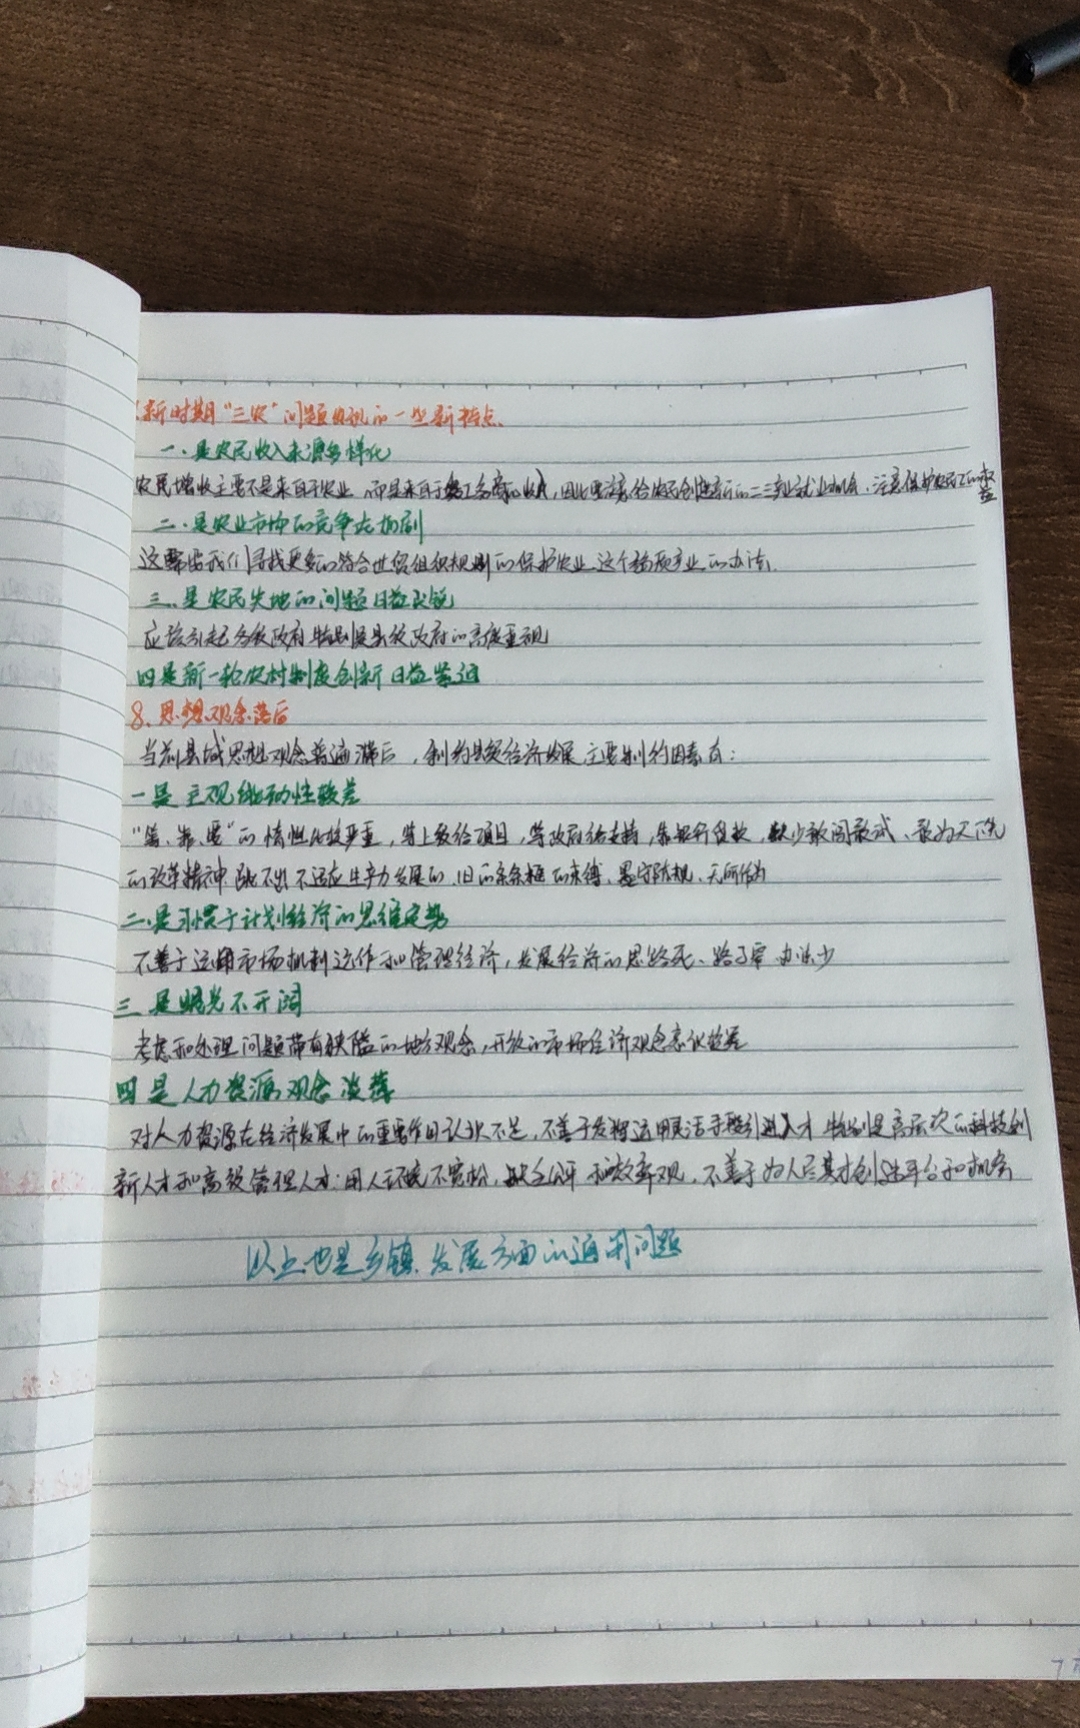 新时期“三农”问题出现的一些新特点
一、是农民收入来源多样化
农民增收主要不是来自于农业,而是来自于务工务商的收入,因此要注意给农民创造新的二三产业就业机会,注意保护农民工的权益
二、是农业市场的竞争在加剧
这需要我们寻找更多的符合世贸组织规则的保护农业这个弱质产业的办法.
三、是农民失地的问题日益尖锐
应该引起各级政府特别是县级政府的高度重视
四是新一轮农村制度创新日益紧迫
8、思想观念落后
当前县域思想观念普遍滞后,制约县域经济发展主要制约因素有:
一是主观能动性较差
“等、靠、要”的惰性比较严重,等上级给项目,等政府给支持,靠银行贷款,缺少敢闯敢试、敢为天下先
的改革精神 跳不出不适应生产力发展的 旧的条条框框的束缚、墨守陈规、无所作为
二、是习惯于计划经济的思维定势
不善于运用市场机制运作和管理经济,发展经济的思路死、路子窄 办法少
三是眼光不开阔
考虑和处理问题带有狭隘的地方观念,开放的市场经济观念意识较差
四是人力资源观念淡薄
对人力资源在经济发展中的重要作用认识不足,不善于发挥运用灵活手段引进人才 特别是高层次的科技创
新人才和高级管理人才;用人环境不宽松,缺乏公平和效率观,不善于为人尽其才创造平台和机会
以上也是乡镇发展方面的通病问题